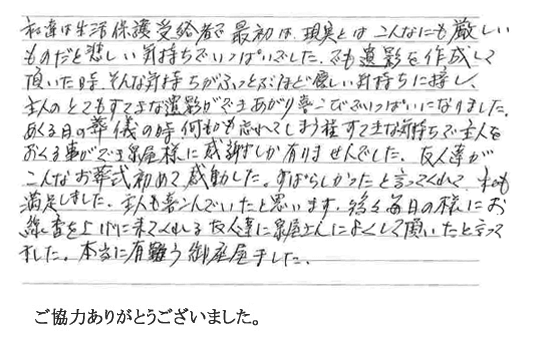 私達は生活保護受給者で最初は、現実とはこんなにも厳しい
ものだと悲しい気持ちでいっぱいでした。でも遺影を作成して
頂いた時、そんな気持ちがふっとぶほど優しい気持ちに接し、
主人のとてもすてきな遺影ができあがり喜こびでいっぱいになりました。
あくる日の葬儀の時何もかも忘れてしまう程すてきな気持ちで主人を
おくる事ができ泉屋様に感謝しか有りませんでした。友人達が
こんなお葬式初めて感動した。すばらしかったと言ってくれて、私も
満足しました。主人も喜こんでいたと思います。後々毎日の様にお
線香を上げに来てくれる友人達に泉屋さんによくして頂いたと言って
ました。本当に有難う御座居ました。
ご協力ありがとうございました。